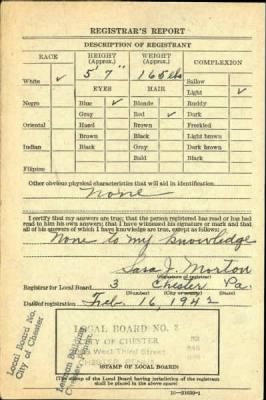 REGISTRAR'S REPORT
DESCRIPTION OF REGISTRANT
RACE HEIGHT (Approx.) WEIGHT (Approx.) COMPLEXION
White ✓ 5' 7" 165 lbs Sallow
EYES HAIR Light ✓
Negro Blue ✓ Blonde Ruddy
Gray Red ✓ Dark
Oriental Hazel Brown Freckled
Brown Black Light brown
Indian Black Gray Dark brown
Bald Black
Filipino
Other obvious physical characteristics that will aid in identification
None
I certify that my answers are true; that the person registered has read or has had
read to him his own answers; that I have witnessed his signature or mark and that
all of his answers of which I have knowledge are true, except as follows:
None to my knowledge
Sara J. Morton
Registrar for Local Board 3 Chester Pa.
Date of registration Feb. 16, 1942
LOCAL BOARD NO. 3
CITY OF CHESTER
West Third Street
CHESTER, PENNA.
STAMP OF LOCAL BOARD
(The stamp of the Local Board having jurisdiction of the registrant
shall be placed in the above space)
Local Board No.
City of Chester
Chester, Penna.